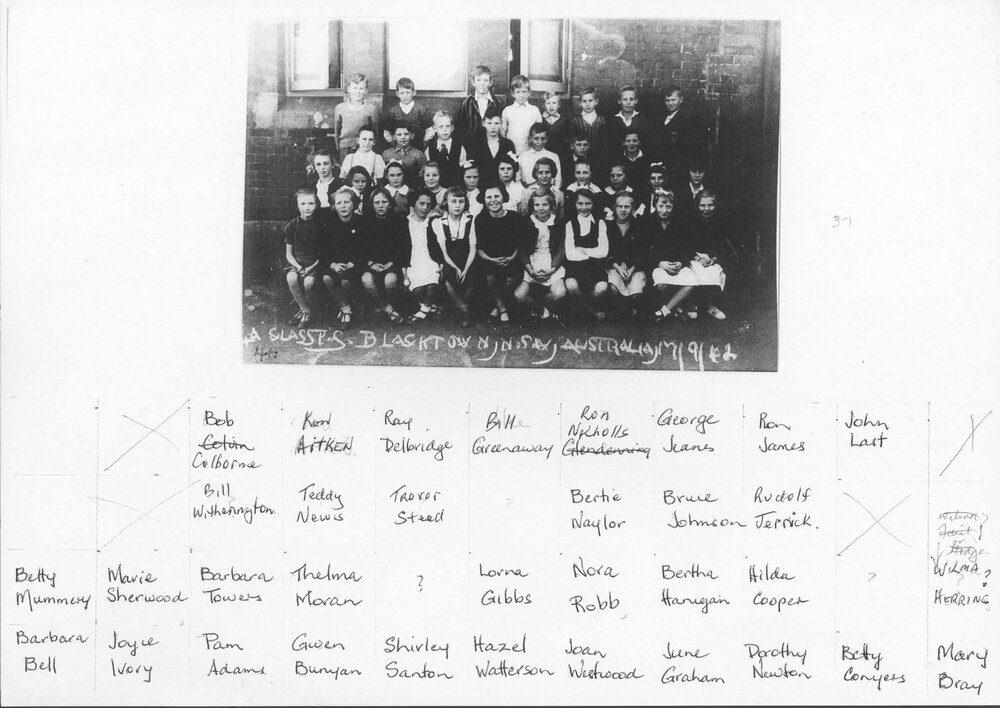 37
A CLASS P.S. BLACKTOWN, N.S.W, AUSTRALIA, 17/9/42
Bob Colvin Colborne
Ken AITKEN
Ray Delbridge
Bill Greenaway
Ron Nicholls Glendenning
George Jeans
Ron James
John Last
Bill Witherington
Teddy Newis
Trevor Steed
?
Bertie Naylor
Bruce Johnson
Rudolf Jerrick.
Betty Mummery
Marie Sherwood
Barbara Towers
Thelma Moran
?
Lorna Gibbs
Nora Robb
Bertha Hanigan
Hilda Cooper
?
WILMA ? HERRING
Barbara Bell
Joyce Ivory
Pam Adams
Gwen Bunyan
Shirley Santon
Hazel Watterson
Joan Westwood
June Graham
Dorothy Newton
Betty Conyers
Mary Bray